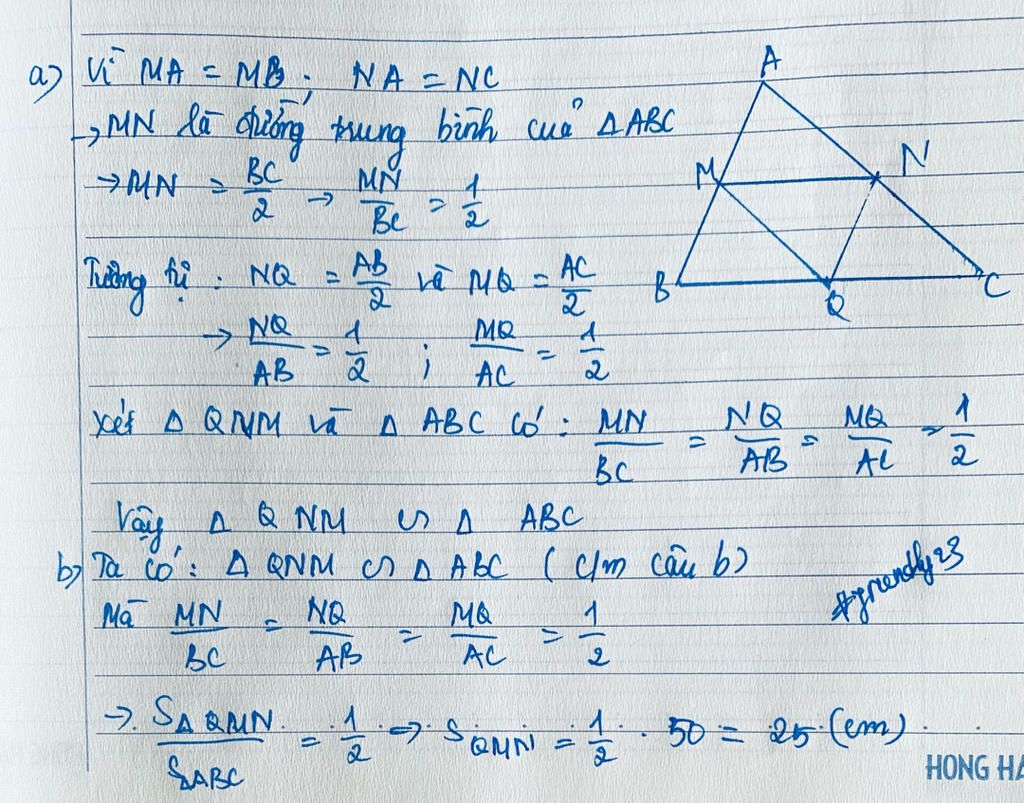 a) Vì MA = MB; NA = NC
A
→ MN là đường trung bình của ΔABC
M N
→ MN = BC/2 → MN/BC = 1/2
Tương tự : NQ = AB/2 và MQ = AC/2
B Q C
→ NQ/AB = 1/2 ; MQ/AC = 1/2
Xét Δ QNM và Δ ABC có: MN/BC = NQ/AB = MQ/AC = 1/2
Vậy Δ QNM ∽ Δ ABC
b) Ta có: Δ QNM ∽ Δ ABC (c/m câu b)
#friendly23
Mà MN/BC = NQ/AB = MQ/AC = 1/2
→ SΔQMN/SΔABC = 1/2 → SQMN = 1/2 . 50 = 25 (cm).
HONG HA